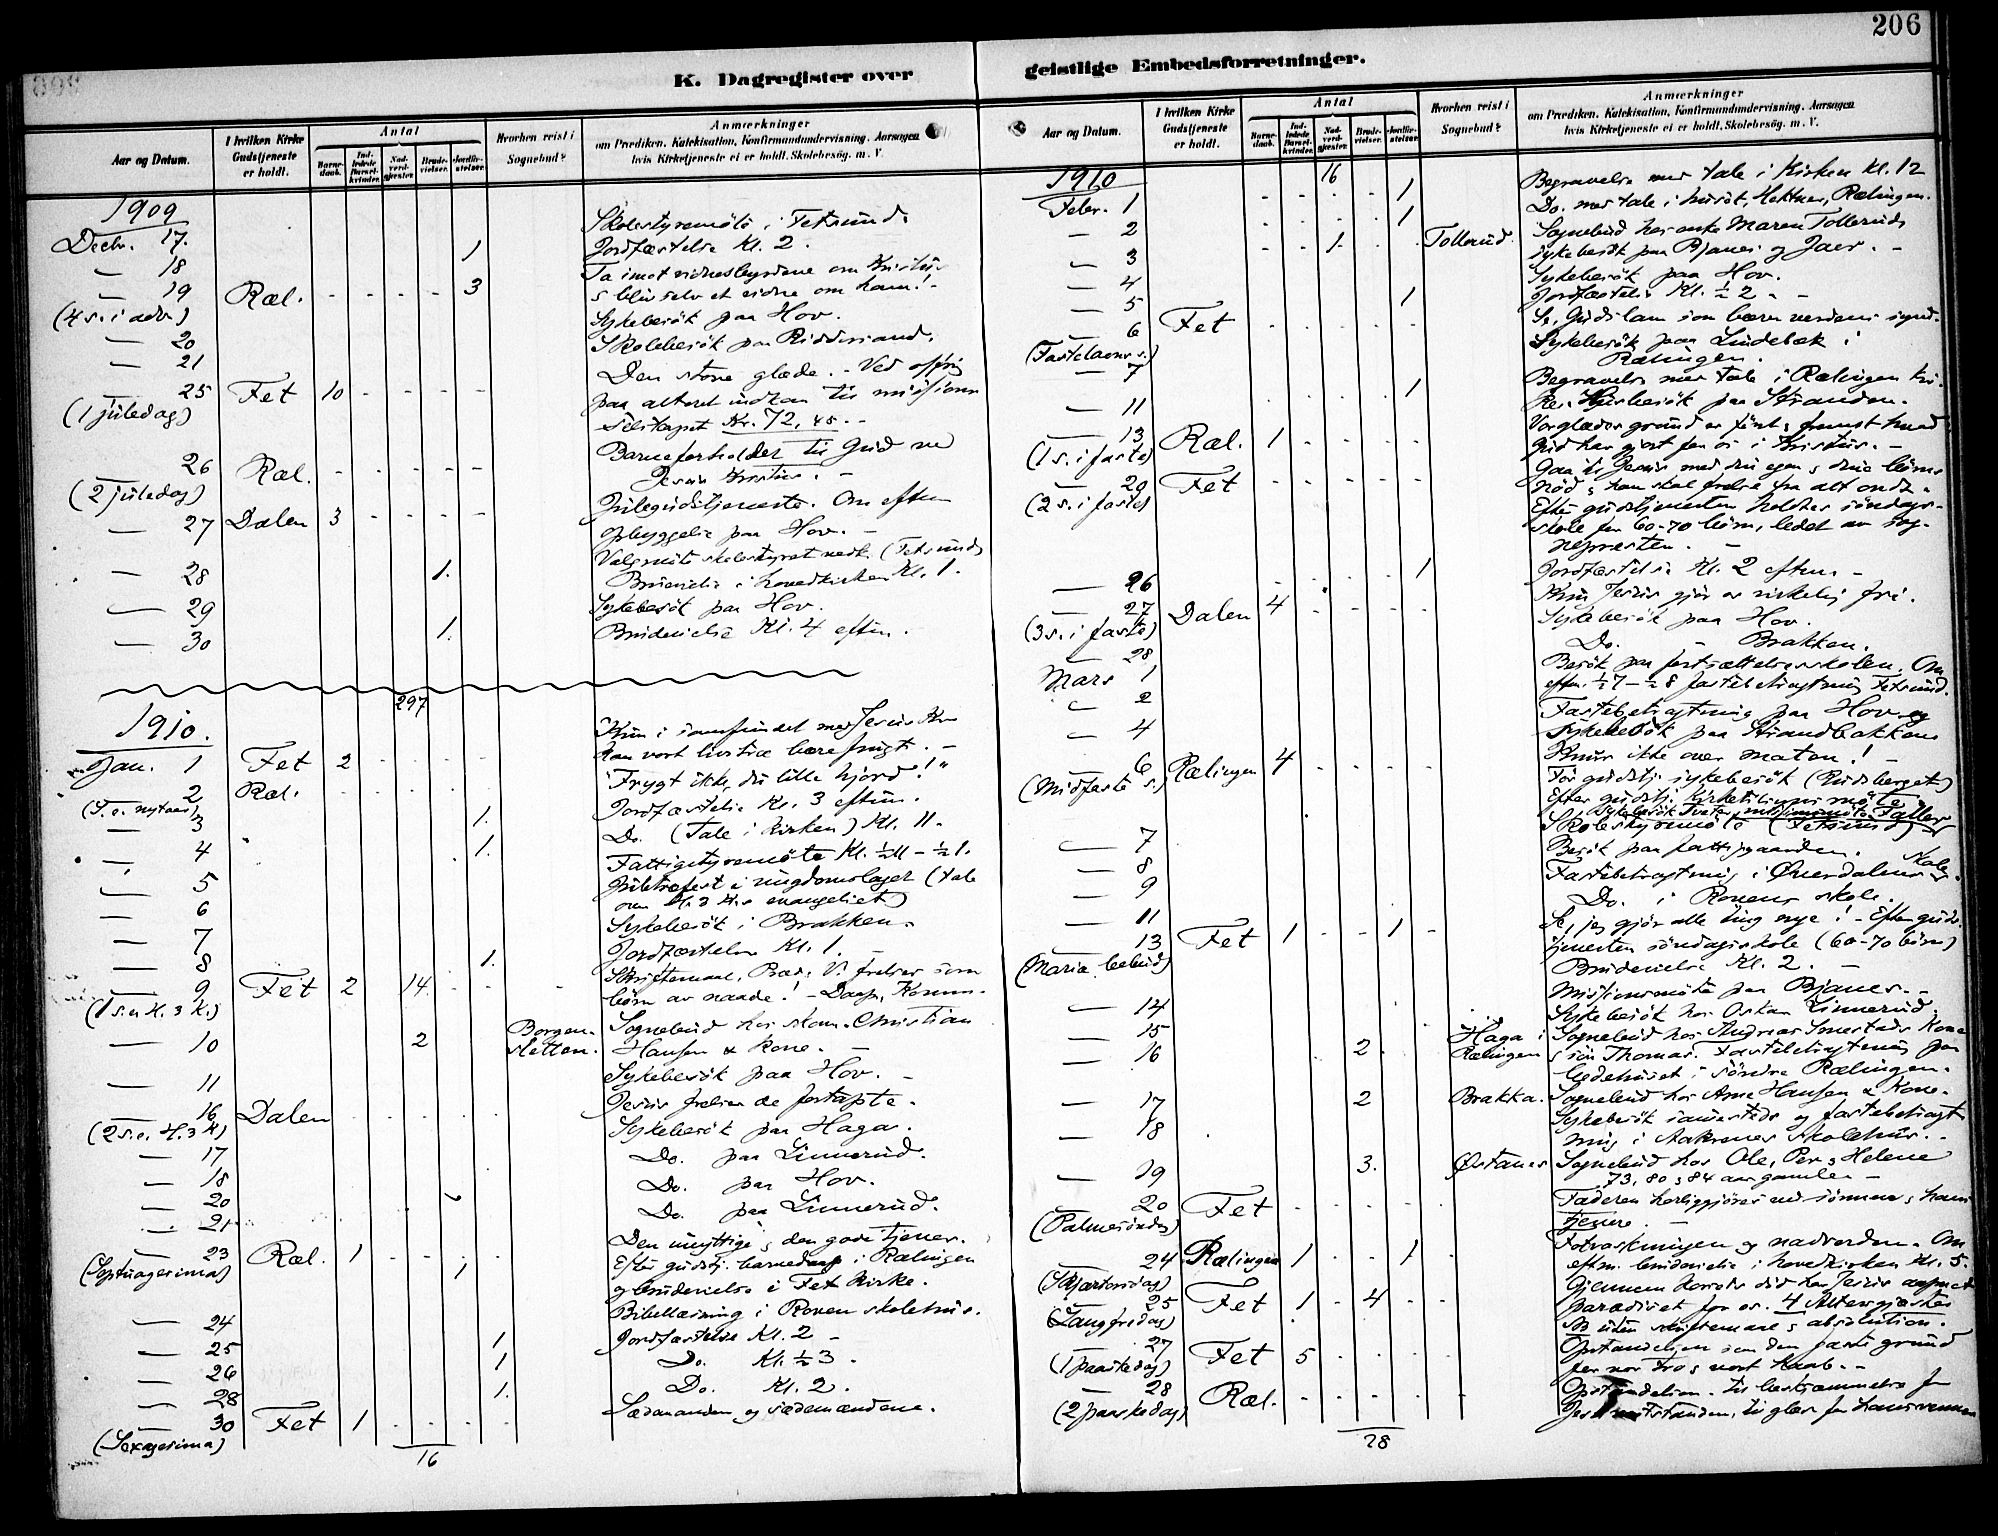 206
K. Dagregister over geistlige Embedsforretninger.
Aar og Datum. I hvilken Kirke Gudstjeneste er holdt. Antal Barnedaab. Indledede Barselkvinder. Nadverdgjester. Brudevielser. Jordfæstelser. Hvorhen reist i Sognebud? Anmærkninger om Prædiken. Katekisation, Konfirmandundervisning. Aarsagen hvis Kirketjeneste ei er holdt. Skolebesøg. m. V.
1909
Decbr. 17. Skolestyremöte i Fetsund.
— 18 1 Jordfæstelse Kl. 2.
— 19 Ræl. - - - - 3 Ta imot vidnesbyrdene om Kristus
(4 s. i adv.) & bliv selv et vidne om ham! -
— 20 Sykebesök paa Hov.
— 21 Skolebesök paa Riddersand.
25 Fet 10 - - - - Den store glæde. - Ved ofring
(1 juledag) paa alteret indkom til missions
selskapet Kr. 72,45. -
26 Ræl. - - - - - Barneforholdet til Gud ved
(2 juledag) Jesus Kristus. -
— 27 Dalen 3 - - - - Julegudstjeneste. Om eftm
Opbyggelse paa Hov. -
— 28 1. Valgmöte skolestyret nedr. (Fetsund)
Brudevielse i hovedkirken Kl. 1.
— 29 Sykebesök paa Hov.
— 30 1. Brudevielse Kl. 4 eftm.
297
1910.
Jan. 1 Fet 2 - - - - Kun i samfundet med Jesus Kr.
kan vort livstræ bære frugt. -
2 Ræl. - - - - - "Frygt ikke, du lille hjord!"
(S. e. nytaar)
— 3 1. Jordfæstelse Kl. 3 eftm.
— 4 1. Do. (Tale i kirken) Kl. 11.
— 5 Fattigstyremöte Kl. ½11 - ½1.
— 6 Juletræfest i ungdomslaget (tale
over H. 3 K.s evangeliet)
— 7 Sykebesök i Brakken.
— 8 1. Jordfæstelse Kl. 1. -
— 9 Fet 2 - 14 - - - Skriftemaal. Præd: Vi frelses som
(1 s. e. H. 3 K.) börn av naade! - Daap, Komm.
— 10 2 Borgen- Sognebud hos skom. Christian
sletten. Hansen & kone. -
— 11 Sykebesök paa Hov. -
16 Dalen - - - - - Jesus frelser de fortapte.
(2 s. e. H. 3 K)
— 17 Sykebesök paa Haga.
— 18 Do. paa Linnerud.
— 20 Do. paa Hov.
— 21 Do. paa Linnerud.
— 23 Ræl. 1 - - 1 - Den unyttige & den gode tjener.
(Septuagesima) Efter gudstj. barnedaap i Rælingen
og brudevielse i Fet kirke.
— 24 Bibellæsning i Roven skolehus.
— 25 1 Jordfæstelse Kl. 2 -
— 26 1 Do. Kl. ½ 3.
— 28 1. Do. Kl. 2.
— 30 Fet 1 - - - - Sædemanden og sædemændene.
(Sexagesima)
16
Aar og Datum. I hvilken Kirke Gudstjeneste er holdt. Antal Barnedaab. Indledede Barselkvinder. Nadverdgjester. Brudevielser. Jordfæstelser. Hvorhen reist i Sognebud? Anmærkninger om Prædiken. Katekisation, Konfirmandundervisning. Aarsagen hvis Kirketjeneste ei er holdt. Skolebesøg. m. V.
1910 16
Febr. 1 - - - - 1 Begravelse med tale i Kirken Kl. 12
— 2 - - - - 1 Do. med tale i huset, Hektner, Rælingen.
— 3 - - 1 - - Tollerud Sognebud hos enke Maren Tollerud,
sykebesök paa Bjanes og Jaer. -
— 4 Sykebesök paa Hov.
— 5 1 Jordfæstelse Kl. ½ 2. -
— 6 Fet - - - - - Se, Guds lam som bærer verdens synd.
(Fastelavns s.)
— 7 Sykebesök paa Lindebæk i
Rælingen.
— 11 1 Begravelse med tale i Rælingen
Husbesök paa Stranden.
— 13 Ræl. 1 - - - - Vor glædes grund er först & fremst hvad
(1 s. i faste) Gud har gjort for os i Kristus. -
— 20 Fet - - - - - Gaa til Jesus med din egen & dine börns
(2 s. i faste) nöd, & han skal frelse fra alt ondt.
Efter gudstjenesten holdtes söndags-
skole for 60-70 börn, ledet av sog-
nepresten. -
— 26 - - - - 1 Jordfæstelse Kl. 2 eftm. -
— 27 Dalen 4 - - - - Kun Jesus gjör os virkelig fri.
(3 s. i faste)
— 28 Sykebesök paa Hov.
Mars 1 Do. - Brakken.
— 2 Besök paa fortsættelsesskolen. Om
eftm. ½7 - ½8 fastebetragtning Fetsund.
— 4 Fastebetragtning paa Hov og
Sykebesök paa Strandbakken
— 6 Rælingen 4 - - - - Knur ikke over maten! -
(Midfaste s.) För gudstj. sykebesök (Rudsberget)
Efter gudstj. kirketilsynsmöte.
— 7 Skolestyremöte (Fetsund)
— 8 Besök paa fattiggaarden.
— 9 Fastebetragtning i Øverdalens skole.
— 11 Do. i Rovens skole.
— 13 Fet 1 - - 1 - Se, jeg gjör alle ting nye! - Efter guds-
(Maria bebud.) tjenesten söndagsskole (60-70 börn)
Brudevielse Kl. 2. -
— 14 Missionsmöte paa Bjanes. -
— 15 Sykebesök hos Oskar Linnerud,
— 16 2. Haga i Rælingen Sognebud hos Andreas Smestads kone
& sön Thomas. Fastebetragtning paa
bedehuset i söndre Rælingen.
— 17 2 Brakka. Sognebud hos Arne Hansen & kone.
— 18 Sykebesök sammesteds og fastebetragt-
ning i Aakrenes skolehus. -
— 19 3. Østanes Sognebud hos Ole, Per & Helene
73, 80 & 84 aar gamle. -
— 20 Fet - - - - - Faderen herliggjöres ved sönnen & hans
(Palmesöndag) tjenere. -
— 24 Rælingen 1 - - 1 - Fotvaskningen og nadverden. Om
(Skjærtorsdag) eftm. brudevielse i hovedkirken Kl. 5.
— 25 Fet 1 - 4 - - Gjennem korsets död har Jesus aapnet
(Langfredag) paradiset for os. 4 Altergjæster
uden skriftemaal & absolution.
— 27 Fet 5 - - - - Opstandelsen som den faste grund
(1 paaskedag) for vor tro & vort haab. -
— 28 Ræl. - - - - - Opstandelsen. til beskjæmmelse for
(2 paaskedag) Jesu motstandere, til glæde for hans venner
28